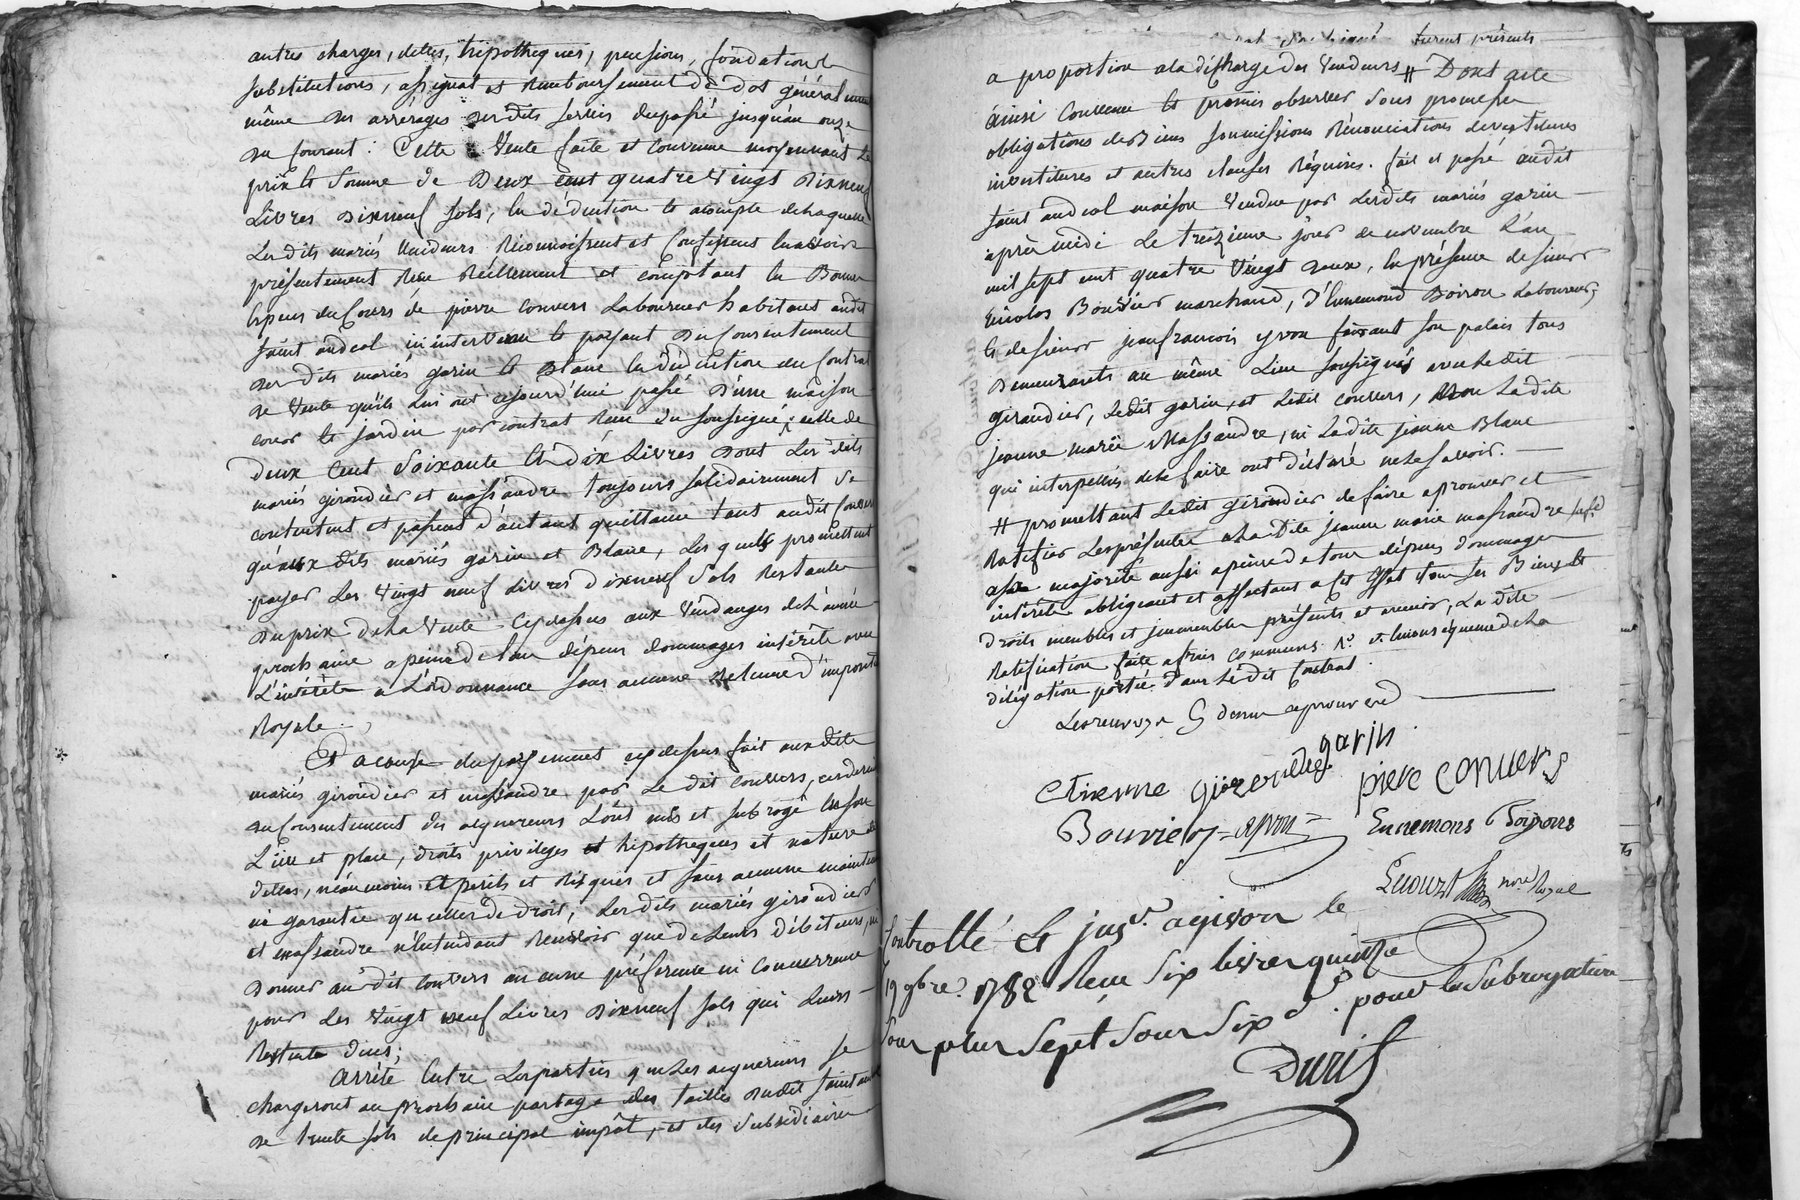 autres charges, dettes, hipotheques, pensions, fondation de
substitutions, assignat et remboursement de dot généralement
même des arrérages desdits servis du passé jusqu'au onze
du courant : Cette Vente faite et convenue moyennant le
prix et somme de Deux cent quatre vingt dixneuf
Livres dixneuf sols, en déduction et acompte de laquelle
Lesdits mariés vendeurs Reconnoissent et Confessent en avoir
présentement Reçu Réellement et comptant en Bonnes
Espèces du Cours de pierre convers Laboureur habitant audit
saint andeol ici intervenu et payant du Consentement
desdits mariés garin et Blanc en déduction du Contrat
de Vente qu'ils lui ont cejourd'hui passé D'une maison
cour et jardin par contrat Reçu du soussigné, celle de
deux Cent Soixante et dix Livres dont Lesdits
mariés girondier et massandre toujours solidairement se
contentent et passent d'autant quittance tant audit Convers
qu'aux dits mariés garin et Blanc, Lesquels promettent
payer Les Vingt neuf Livres dixneuf sols Restantes
du prix de la Vente cydessus aux Vendanges de L'année
prochaine a peine de tous dépens dommages intérêts avec
L'intérêt a L'ordonnance sans aucune Retenue d'imposition
Royale.
Et a cause du payement cydessus fait auxdits
mariés girondier et massandre par Le dit Convers, ces derniers
du Consentement des acquereurs L'ont mis et subrogé en son
Lieu et place, droits privileges et hipotheques et nature
dettes, néanmoins et perils et Risques et sans aucune maintenue
ni garantie qu'icelle de droit, Lesdits mariés girondier
et massandre n'entendant Recevoir que de Leurs débiteurs, ni
Donner audit Convers aucune préférence ni Concurrence
pour Les Vingt neuf Livres Dixneuf sols qui Leurs
Restent dues;
Arrêté Entre Les parties que Les acquereurs se
chargeront au prochain partage des tailles dudit saint andeol
de trente sols de principal impôt, et des subsidiaires
furent présents
a proportion a la décharge des Vendeurs # Dont acte
Ainsi Convenu et promis observer sous promesses
obligations de Biens soumissions Rénonciations devestitures
investitures et autres clauses Réquises. fait et passé audit
saint andeol maison Vendue par Lesdits mariés garin
après midi Le treizieme jour de novembre L'an
mil sept cent quatre Vingt deux, En présence de sieur
nicolas Bouvier marchand, d'Ennemond Boiron Laboureur,
et de sieur jean francois yvon faisant son palais tous
Demeurants au même Lieu soussignés avec Ledit
girondier, Ledit garin, et Ledit convers, Non Ladite
jeanne marie Massandre, ni Ladite jeanne Blanc
qui interpellées de le faire ont déclaré ne le savoir.
# promettant Ledit girondier de faire aprouver et
Ratifier Les présentes a Ladite jeanne marie massandre
a sa majorité aussi a peine de tous dépens dommages
intérêts obligeant et affectant a cet Effet tous ses Biens et
Droits meubles et jmmeubles présents et avenir, La dite
Ratification faite a frais communs. et en conséquence de La
délégation portée dans Ledit Contrat.
Les renvoys cy dessus aprouvés
garin
Etienne pierre convers
Bouvier yvon Ennemons Boirons
nore Royal
Controllé Et le
19 9bre. 1782 Reçu six livres quinze
sous plus sept sous six d. pour la subrogation
Duris